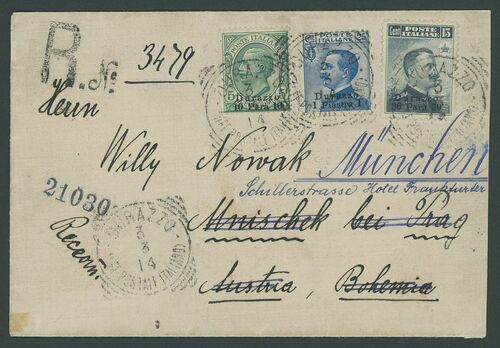 R
N.
3479
POSTE ITALIANE
5
Durazzo
10 Parà 10
Durazzo
1 Piastra 1
Cent
POSTE ITALIANE
15
Durazzo
30 Parà 30
DURAZZO
3
3
14
Herrn
Willy Nowak
München
Schillerstrasse Hotel Frankfurter
21030
Mnischek bei Prag
DURAZZO
3
3
14
(POSTALI ITALIANE)
Austria, Bohemia